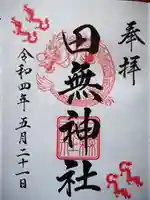 奉拝
田無神社
令和四年五月二十一日